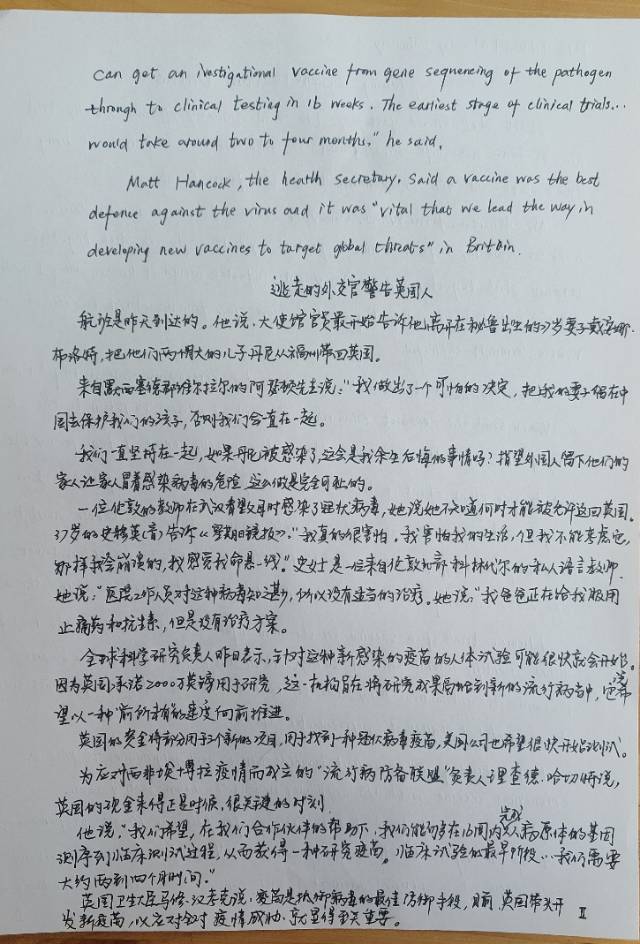 can get an ivestigational vaccine from gene sequencing of the pathogen
through to clinical testing in 16 weeks. The earliest stage of clinical trials...
would take around two to four months," he said.
Matt Hancock, the health secretary. said a vaccine was the best
defence against the virus and it was "vital that we lead the way in
developing new vaccines to target global threats" in Britain.
逃走的外交官警告英国人
航班是昨天到达的。他说,大使馆官员最开始告诉他,离开在秘鲁出生的37岁妻子戴安娜·
布洛特,把他们两个大的儿子丹尼从福州带回英国。
来自默西塞德郡维尔拉尔的阿 先生说:"我做出了一个可怕的决定,把我的妻子留在中
国去保护我们的孩子,否则我们会一直在一起。
我们一直坚持在一起,如果丹尼被感染了,这会是我余生后悔的事情吗?指望外国人留下他们的
家人让家人冒着感染病毒的危险 这么做是完全可耻的。
一位伦敦的教师在武汉看望母时感染了冠状病毒,她说她不知道何时才能被允许返回英国。
37岁的史 英(音)告诉《星期日镜报》:"我真的很害怕。我害怕我的生活,但我不能考虑它,
那样我会崩溃的,我感觉我命悬一线。"史女士是一位来自伦敦北部科林代尔的私人语言教师.
她说:"医院工作人员对这种病毒知之甚少,所以没有适当的治疗。她说:"我爸爸正在给我服用
止痛药和抗生素,但是没有治疗方案。
全球科学研究负责人昨日表示,针对这种新感染的疫苗的人体试验可能很快就会开始。
因为英国承诺2000万英镑用于研究,这一机构旨在将研究成果 到新的流行病当中,它希
望以一种前所未有的速度向前推进。
英国的资金将部分用于3个新的项目,用于找到一种冠状病毒疫苗,美国公司也希望很快开始测试。
为应对西非埃博拉疫情而成立的"流行病防备联盟"负责人理查德·哈切特说,
英国的现金来得正是时候,很关键的时刻
他说,"我们希望,在我们合作伙伴的帮助下,我们能够在16周内完成从病原体的基因
测序到临床测试过程,从而获得一种研究疫苗。临床试验的最早阶段…我们需要
大约两到四个月时间。"
英国卫生大臣马修·汉考克说:疫苗是抵御病毒的最佳防御手段,目前,英国带头开
发新疫苗,以应对全球疫情威胁 就显得至关重要。
II